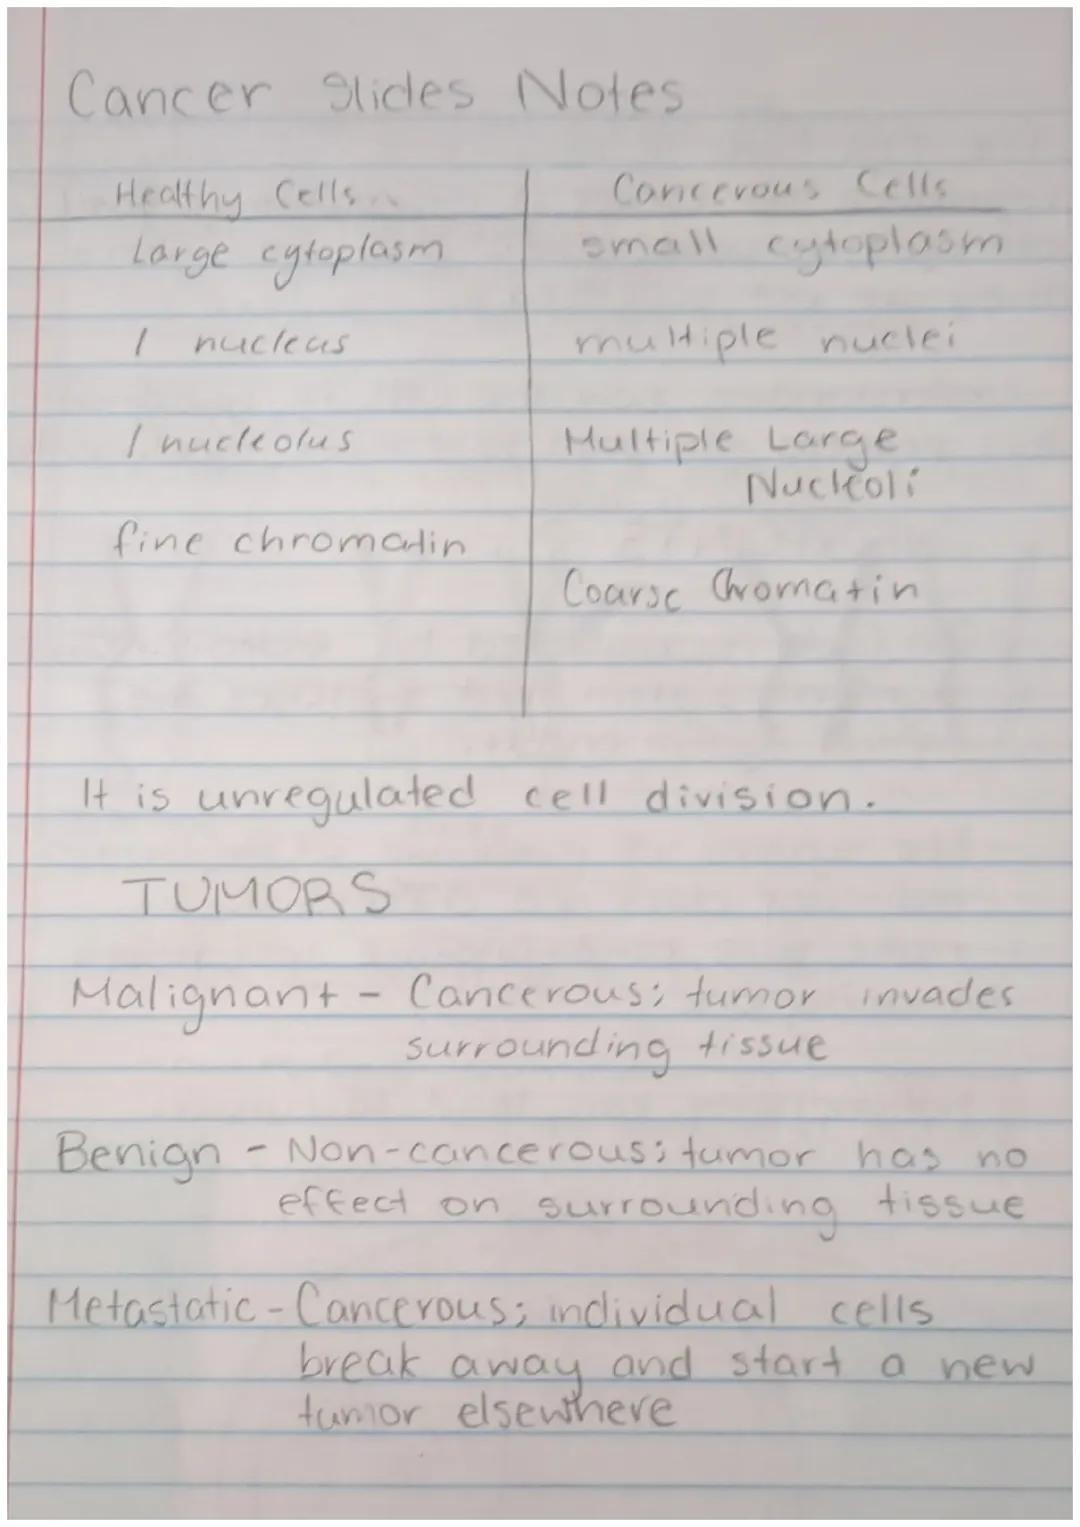 Cancer Slides Notes
Healthy Cells
Cancerous Cells
Large cytoplasm
small cytoplasm
1 nucleus
multiple nuclei
1 nucleolus
Multiple Large
Nucleoli
fine chromatin
Coarse Chromatin
It is unregulated cell division.
TUMORS
Malignant - Cancerous; tumor invades
surrounding tissue
Benign - Non-cancerous; tumor has no
effect on surrounding tissue
Metastatic - Cancerous; individual cells
break away and start a new
tumor elsewhere